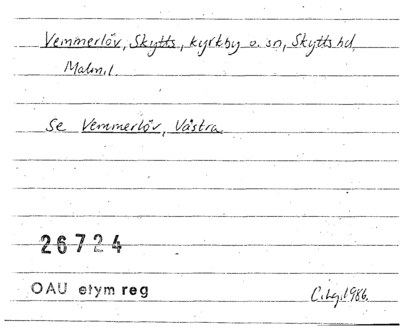 Vemmerlöv, Skytts, kyrkby o. sn, Skytts hd,
Malm.l.
se Vemmerlöv, Västra.
26724
OAU etym reg
C.Lg.1986.